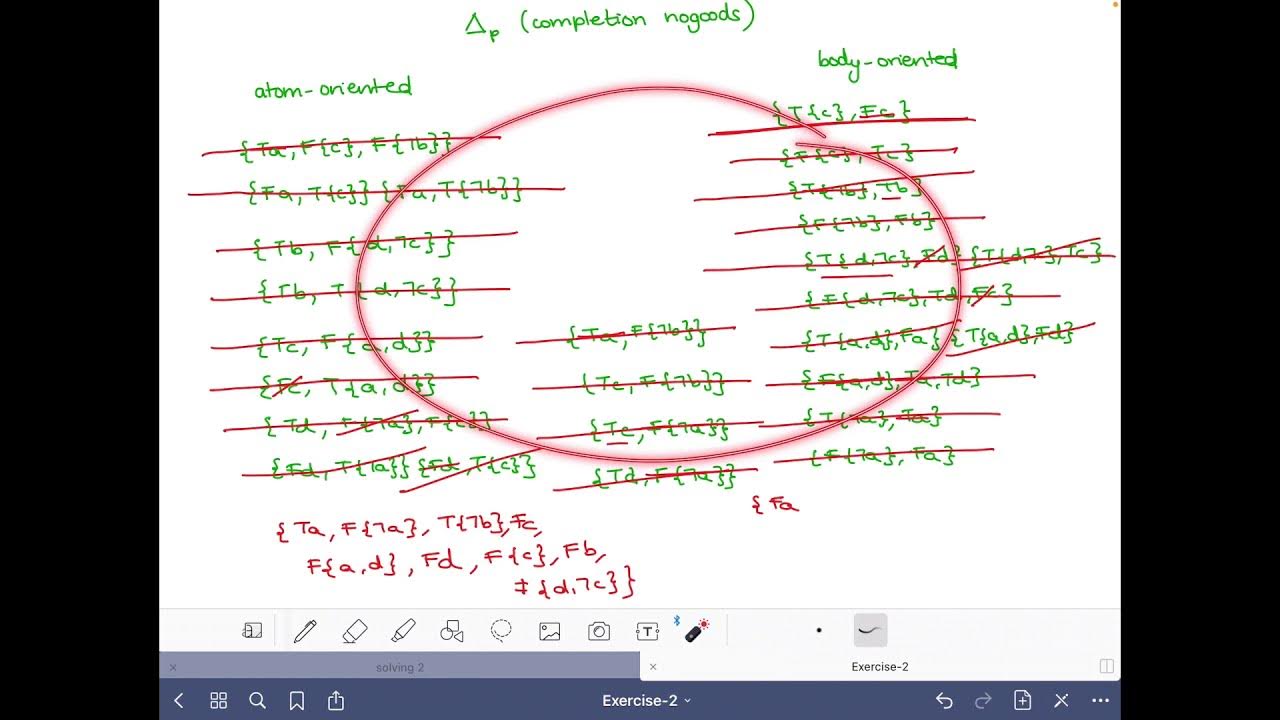 Δp (completion nogoods)
atom-oriented
{Ta, F{c}, F{¬b}}
{Fa, T{c}} {Fa, T{¬b}}
{Tb, F{d,¬c}}
{Tb, T{d,¬c}}
{Tc, F{a,d}}
{Fc, T{a,d}}
{Td, F{¬a}, F{c}}
{Fd, T{¬a}} {Fd, T{c}}
{Ta, F{¬b}}
{Tc, F{¬b}}
{Tc, F{¬a}}
{Td, F{¬a}}
body-oriented
{T{c}, Fc}
{F{c}, Tc}
{T{¬b}, Tb}
{F{¬b}, Fb}
{T{d,¬c}, Fd} {T{d,¬c}, Tc}
{F{d,¬c}, Td, Fc}
{T{a,d}, Fa} {T{a,d}, Fd}
{F{a,d}, Ta, Td}
{T{¬a}, Ta}
{F{¬a}, Fa}
{Fa
{Ta, F{¬a}, T{¬b}, Fc,
F{a,d}, Fd, F{c}, Fb,
F{d,¬c}}
T
solving 2
Exercise-2
Exercise-2